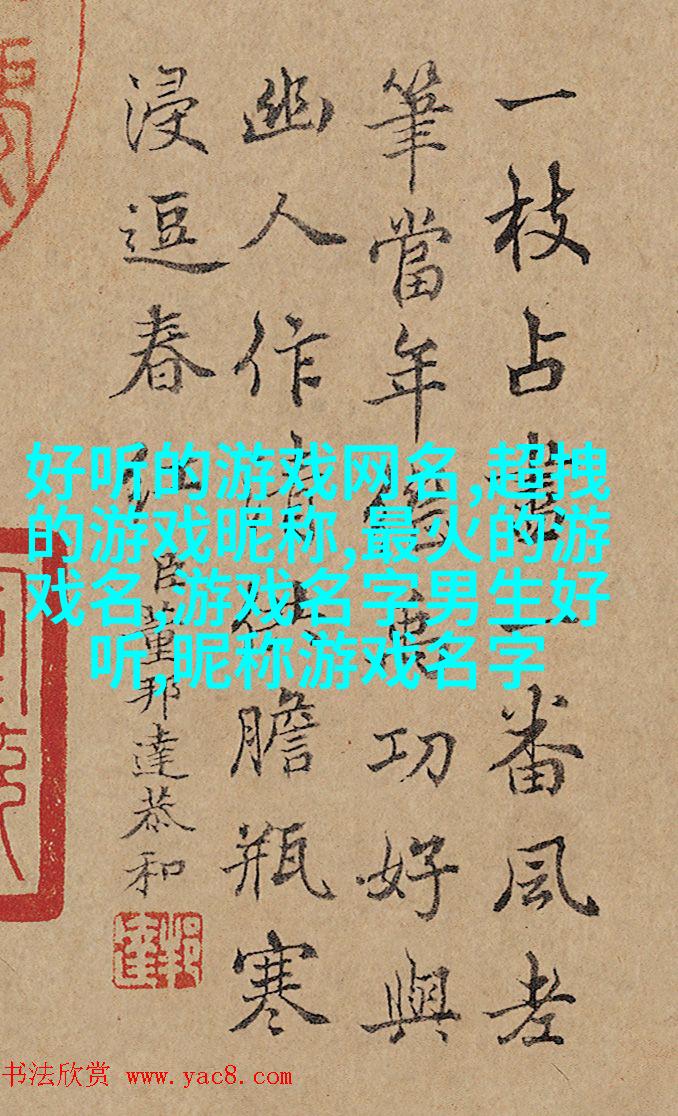 一枝占一番風老
筆當年功好與
幽人作膽瓶寒
浸逗春
臣董邦達恭和
好听的游戏网名,超拽
的游戏昵称,最火的游
戏名,游戏名字男生好
听,昵称游戏名字
书法欣赏 www.yac8.com